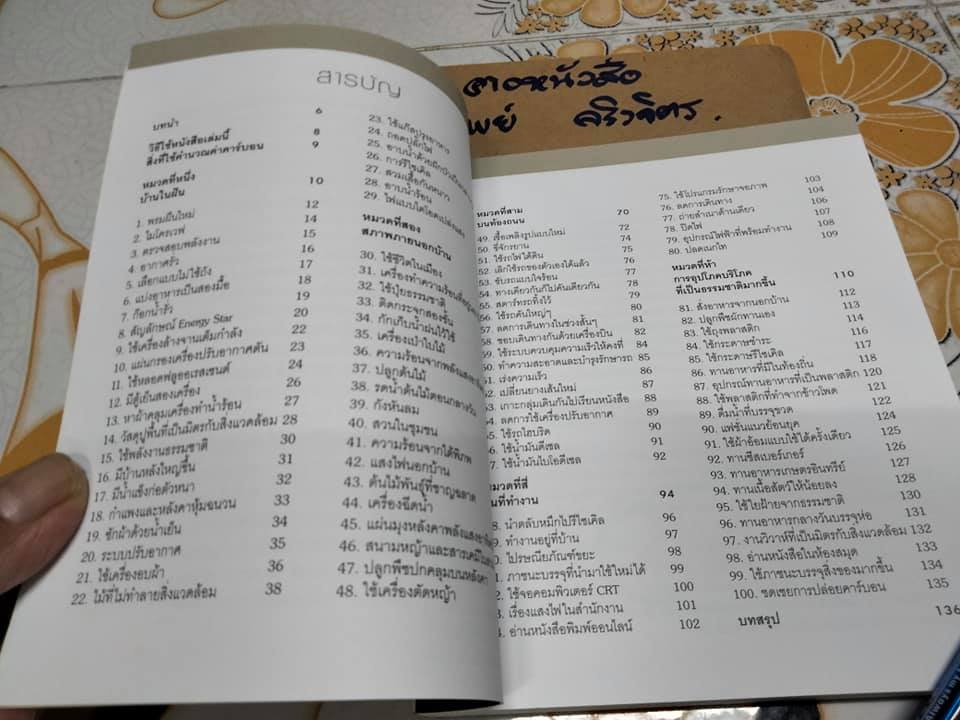 สารบัญ
บทนำ 6
วิธีใช้หนังสือเล่มนี้ 8
สิ่งที่ใช้คำนวณค่าคาร์บอน 9
หมวดที่หนึ่ง
บ้านในฝัน 10
1. พรมผืนใหม่ 12
2. ไมโครเวฟ 14
3. ตรวจสอบพลังงาน 15
4. อากาศรั่ว 16
5. เลือกแบบไม่ใช้ถัง 17
6. แบ่งอาหารเป็นสองมื้อ 18
7. ก๊อกน้ำรั่ว 19
8. สัญลักษณ์ Energy Star 20
9. ใช้เครื่องล้างจานเต็มกำลัง 22
10. แผ่นกรองเครื่องปรับอากาศตัน 23
11. ใช้หลอดฟลูออเรสเซนต์ 24
12. มีตู้เย็นสองเครื่อง 26
13. หาผ้าคลุมเครื่องทำน้ำร้อน 27
14. วัสดุปูพื้นที่เป็นมิตรกับสิ่งแวดล้อม 28
15. ใช้พลังงานธรรมชาติ 30
16. มีบ้านหลังใหญ่ขึ้น 31
17. มีน้ำแข็งก่อตัวหนา 32
18. กำแพงและหลังคาหุ้มฉนวน 33
19. ซักผ้าด้วยน้ำเย็น 34
20. ระบบปรับอากาศ 35
21. ใช้เครื่องอบผ้า 36
22. ไม้ที่ไม่ทำลายสิ่งแวดล้อม 38
23. ใช้แก๊สปรุงอาหาร
24. ถอดปลั๊กไฟ
25. อาบน้ำด้วยฝักบัว
26. การรีไซเคิล
27. สวมเสื้อกันหนาว
28. อาบน้ำร้อน
29. ไฟแบบไดโอดเปล่งแสง
หมวดที่สอง
สภาพภายนอกบ้าน
30. ใช้ชีวิตในเมือง
31. เครื่องทำความร้อน
32. ใช้ปุ๋ยธรรมชาติ
33. ติดกระจกสองชั้น
34. กักเก็บน้ำฝนไว้ใช้
35. เครื่องเป่าใบไม้
36. ความร้อนจากพลังแสง
37. ปลูกต้นไม้
38. รดน้ำต้นไม้ตอนกลางวัน
39. กังหันลม
40. สวนในชุมชน
41. ความร้อนจากใต้พิภพ
42. แสงไฟนอกบ้าน
43. ต้นไม้พันธุ์ที่ชาญฉลาด
44. เครื่องฉีดน้ำ
45. แผ่นมุงหลังคาพลังแสง
46. สนามหญ้าและสารเคมี
47. ปลูกพืชปกคลุมบนหลังคา
48. ใช้เครื่องตัดหญ้า
หมวดที่สาม
บนท้องถนน 70
49. ซื้อเพลิงรูปแบบใหม่ 72
50. ขี่จักรยาน 74
51. ใช้รถไฟใต้ดิน 75
52. เลิกใช้รถของตัวเองได้แล้ว 76
53. ขับรถแบบใจร้อน 77
54. ทางเดียวกันก็ไปคันเดียวกัน 78
55. สตาร์ทรถทิ้งไว้ 79
56. ใช้รถคันใหญ่ๆ 80
57. ลดการเดินทางในช่วงสั้นๆ 81
58. ชอบเดินทางกันด้วยเครื่องบิน 82
59. ใช้ระบบควบคุมความเร็วให้คงที่ 84
60. ทำความสะอาดและบำรุงรักษารถ 85
61. เร่งความเร็ว 86
62. เปลี่ยนยางเส้นใหม่ 87
63. เกาะกลุ่มเดินกันไปเรียนหนังสือ 88
64. ลดการใช้เครื่องปรับอากาศ 89
65. ใช้รถไฮบริด 90
66. ใช้น้ำมันดีเซล 91
67. ใช้น้ำมันไบโอดีเซล 92
หมวดที่สี่
ในที่ทำงาน 94
8. นำตลับหมึกไปรีไซเคิล 96
9. ทำงานอยู่ที่บ้าน 97
0. ไปรษณียภัณฑ์ขยะ 98
1. ภาชนะบรรจุที่นำมาใช้ใหม่ได้ 99
2. ใช้จอคอมพิวเตอร์ CRT 100
3. เรื่องแสงไฟในสำนักงาน 101
4. อ่านหนังสือพิมพ์ออนไลน์ 102
75. ใช้โปรแกรมรักษาจอภาพ 103
76. ลดการเดินทาง 104
77. ถ่ายสำเนาด้านเดียว 106
78. ปิดไฟ 107
79. อุปกรณ์ไฟฟ้าที่พร้อมทำงาน 108
80. ปลดเนกไท 109
หมวดที่ห้า
การอุปโภคบริโภค
ที่เป็นธรรมชาติมากขึ้น 110
81. สั่งอาหารจากนอกบ้าน 112
82. ปลูกพืชผักทานเอง 113
83. ใช้ถุงพลาสติก 114
84. ใช้กระดาษชำระ 116
85. ใช้กระดาษรีไซเคิล 117
86. ทานอาหารที่มีในท้องถิ่น 118
87. อุปกรณ์ทานอาหารที่เป็นพลาสติก 120
88. ใช้พลาสติกที่ทำจากข้าวโพด 121
89. ดื่มน้ำที่บรรจุขวด 122
90. แฟชั่นแนวย้อนยุค 124
91. ใช้ผ้าอ้อมแบบใช้ได้ครั้งเดียว 125
92. ทานชีสเบอร์เกอร์ 126
93. ทานอาหารเกษตรอินทรีย์ 127
94. ทานเนื้อสัตว์ให้น้อยลง 128
95. ใช้ใยฝ้ายจากธรรมชาติ 130
96. ทานอาหารกลางวันบรรจุห่อ 131
97. งานวิวาห์ที่เป็นมิตรกับสิ่งแวดล้อม 132
98. อ่านหนังสือในห้องสมุด 133
99. ใช้ภาชนะบรรจุสิ่งของมากขึ้น 134
100. ชดเชยการปล่อยคาร์บอน 135
บทสรุป 136